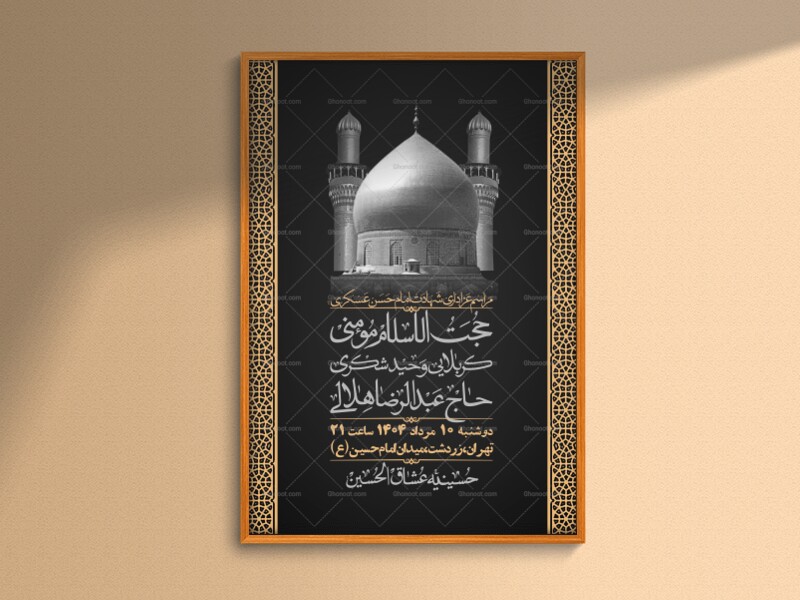 مراسم عزاداری شهادت امام حسن عسکری
حجت الاسلام مؤمنی
کربلایی وحید شکری
حاج عبدالرضا هلالی
دوشنبه ۱۰ مرداد ۱۴۰۴ ساعت ۲۱
تهران، زردشت، میدان امام حسین (ع)
حسینیه عشاق الحسین
Ghonoot.com